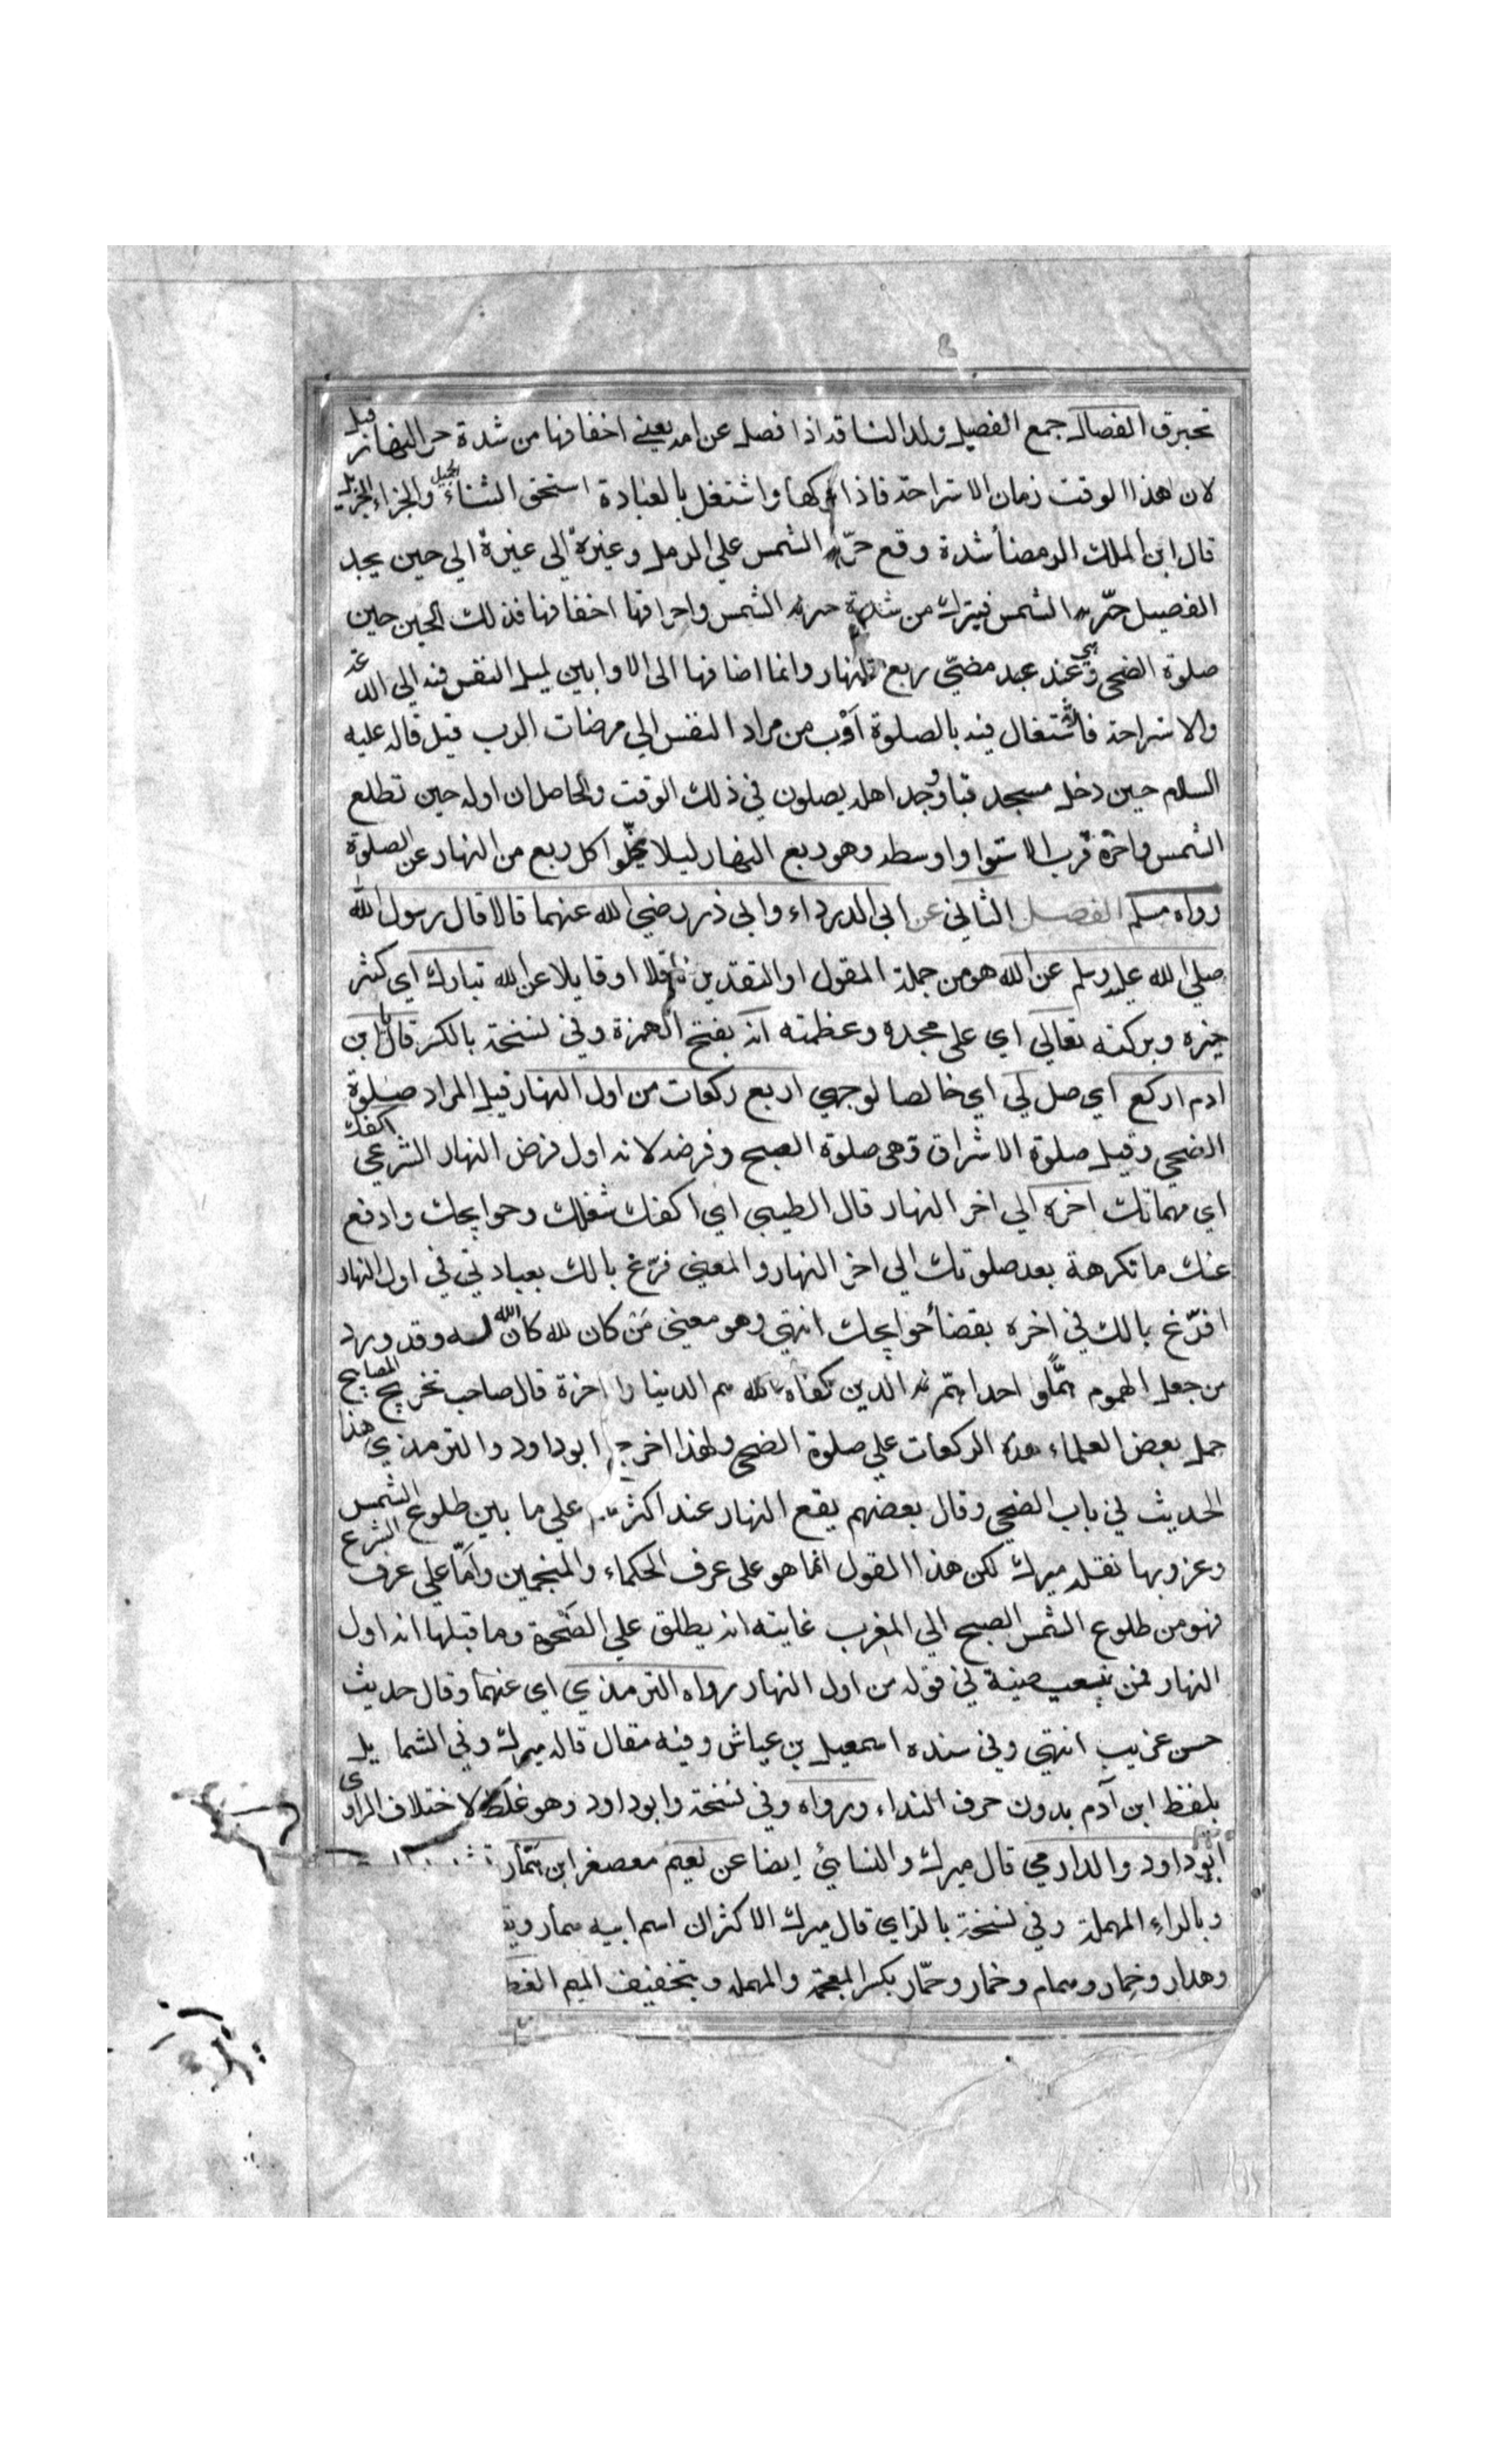 تحترق الفصال جمع الفصيل ولد الناقة اذا فصل عن امه يعني اخفافها من شدة حر النهار قيل
لان هذا الوقت زمان الاستراحة فاذا تركها واشتغل بالعبادة استحق الثناء الجميل والجزاء الجزيل
قال ابن الملك الرمضأ شدة وقع حرّ الشمس علي الرمل وغيرهٔ الي حين يجد
الفصيل حرّ الشمس فيبرك من شدة حر الشمس واحراقها اخفافها فذلك الحين حين
صلوة الضحى وهي عند مضيّ ربع النهار وانما اضافها الى الاوابين لميل النفس فيه الي الدعة
والاستراحة فالاشتغال فيه بالصلوة اَوْب من مراد النفس الي مرضات الرب قيل قاله عليه
السلام حين دخل مسجد قبا ووجد اهله يصلون في ذلك الوقت والحاصل ان اوله حين تطلع
الشمس واخرة قرب الاستوا واوسطه وهو ربع النهار ليلا يخلّوا كل ربع من النهار عن الصلوة
رواه مسلم الفصل الثاني عن ابي الدرداء وابي ذر رضي الله عنهما قالا قال رسول الله
صلي الله عليه وسلم عن الله هو من جملة المقول او التقدير ناقلا او قايلا عن الله تبارك اي كثر
خيره وبركته تعالي اي على مجده وعظمته انه بفتح الهمزة وفي نسخة بالكسر قال يا بن
ادم اركع اي صل لي اي خالصا لوجهي اربع ركعات من اول النهار قيل المراد صلوة
الضحي وقيل صلوة الاشراق وقيل هي صلوة الصبح وفرضه لانه اول فرض النهار الشرعي اكفك
اي مهماتك اخره الي اخر النهار قال الطيبي اي اكفك شغلك وحوايجك وادفع
عنك ما تكرهة بعد صلوتك الي اخر النهار والمعني فرّغ بالك بعبادتي في اول النهار
افرّغ بالك في اخره بقضأ حوايجك انتهي وهو معني مَن كان لله كان الله له وقد ورد
من جعل الهموم همًّا واحدا هم الدين كفاه الله هم الدينا والاخرة قال صاحب تخريج المصابيح
حمل بعض العلماء هذه الركعات علي صلوة الضحى ولهذا اخرج ابو داود والترمذي هذا
الحديث في باب الضحي وقال بعضهم يقع النهار عند اكثرهم علي ما بين طلوع الشمس
وغروبها نقله ميرك لكن هذا القول انما هو على عرف الحكماء والمنجمين وامّا علي عرف الشرع
فهو من طلوع الصبح الي المغرب غايته انه يطلق علي الضَحْوة وما قبلها انه اول
النهار فمن تبعيضية في قوله من اول النهار رواه الترمذي اي عنهما وقال حديث
حسن غريب انتهي وفي سنده اسمعيل بن عياش وفيه مقال قاله ميرك وفي الشمايل
بلفظ ابن آدم بدون حرف النداء ورواه وفي نسخة وابو داود وهو غلط لاختلاف الراوي
ابو داود والدارمي قال ميرك والنسائي ايضا عن نعيم مصغر ابن همّار
وبالراء المهملة وفي نسخة بالزاي قال ميرك الاكثر ان اسم ابيه همار
وهدار وخمار وهمام وخمار وحمّار بكسر المعجمة والمهملة وبتخفيف الميم